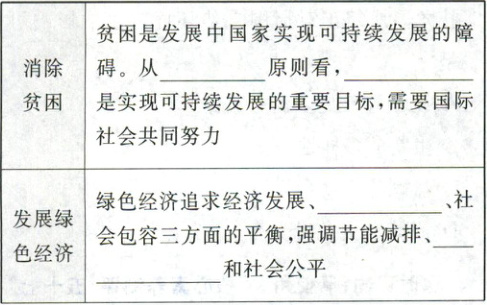 消除
贫困
贫困是发展中国家实现可持续发展的障
碍。从________原则看,__________
是实现可持续发展的重要目标,需要国际
社会共同努力
发展绿
色经济
绿色经济追求经济发展、__________、社
会包容三方面的平衡,强调节能减排、___
__________和社会公平